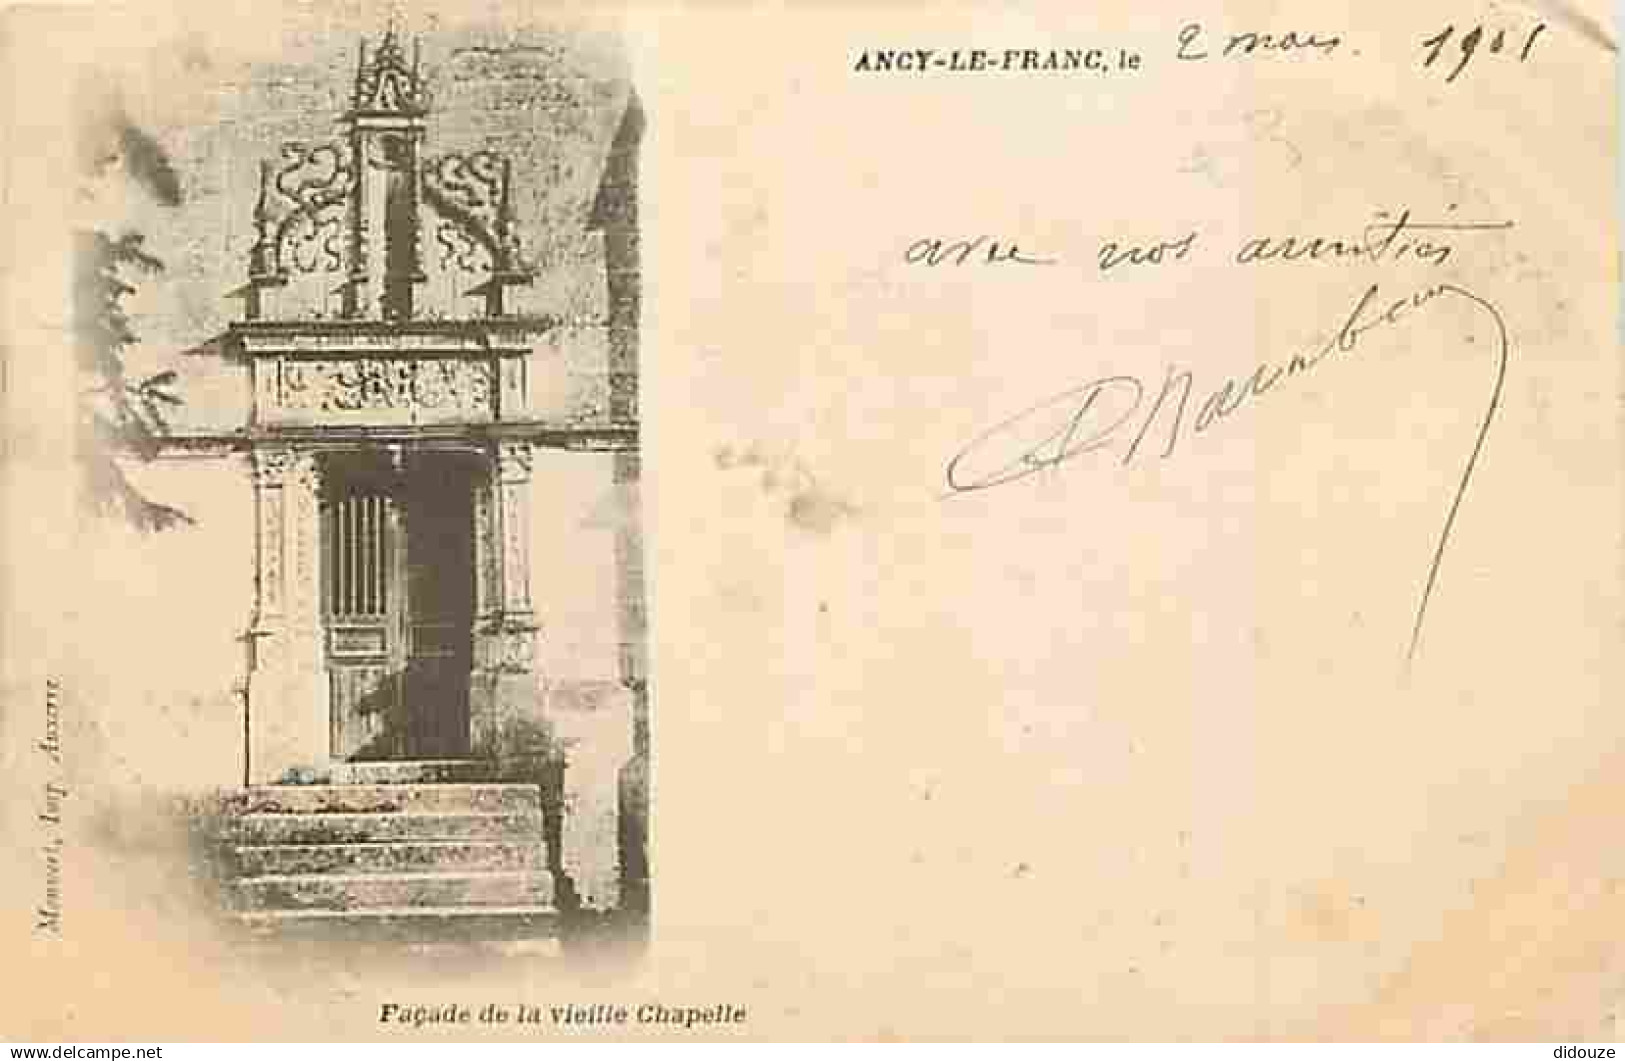 ANCY-LE-FRANC, le 2 mars. 1901
avec nos amitiés
Façade de la vieille Chapelle
Imp. Auxerre
delcampe.net
didouze